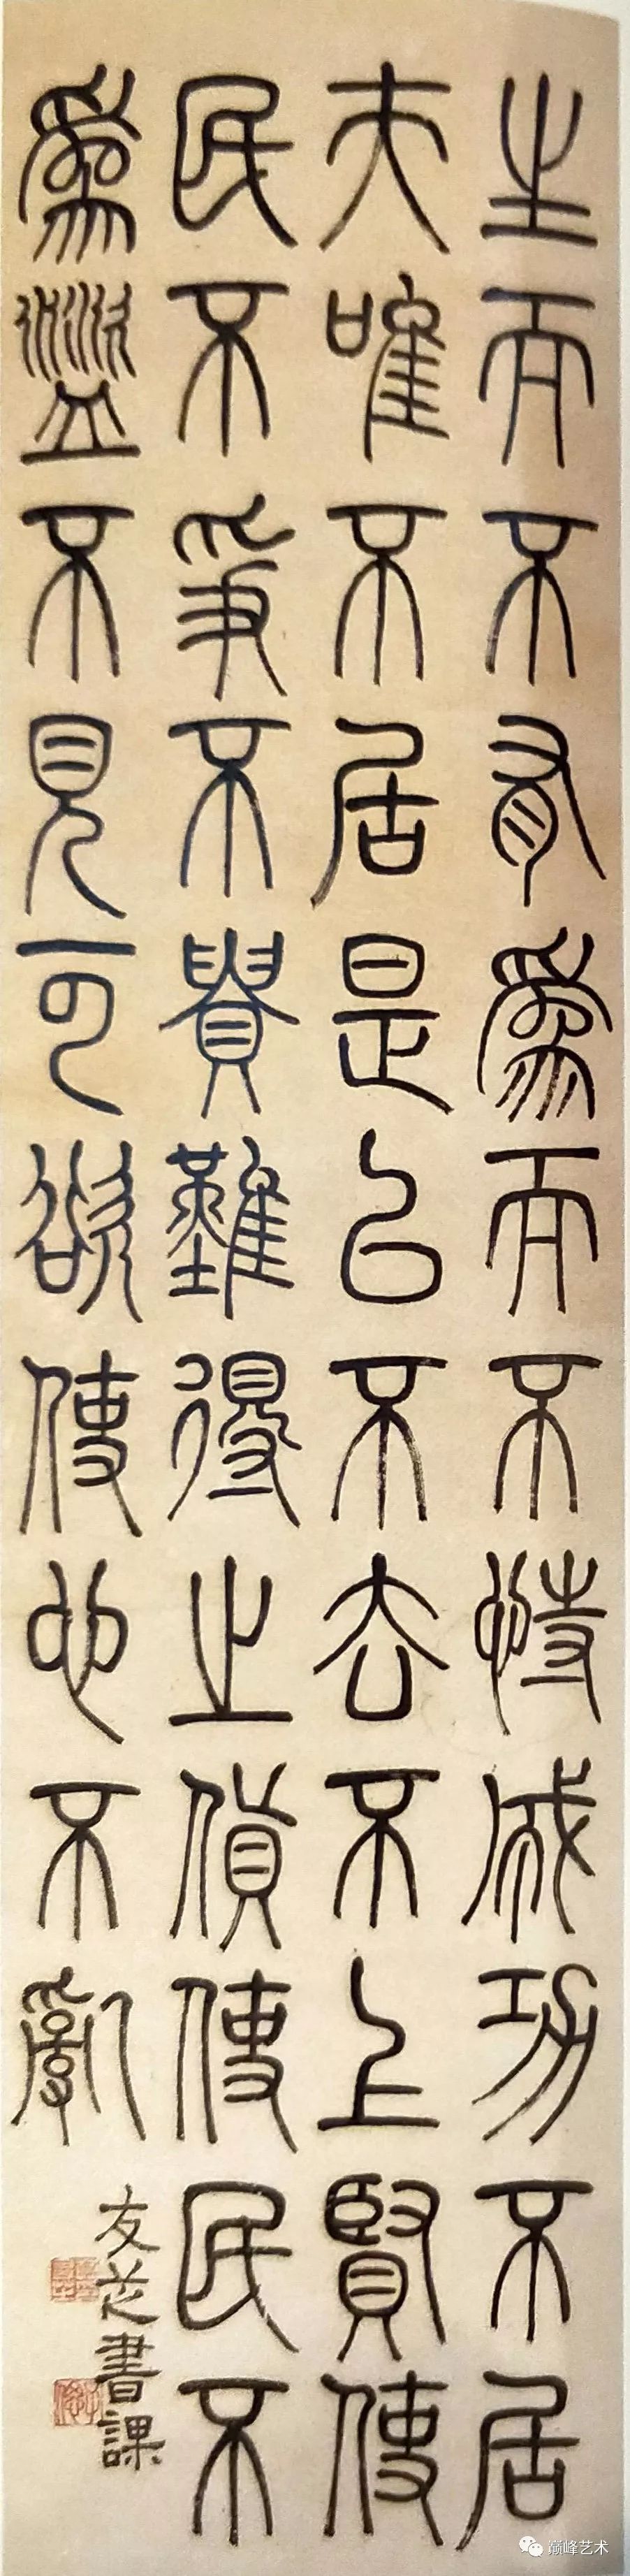 生而不有為而不恃成功不居
夫唯不居是以不去不上賢使
民不爭不貴難得止貨使民不
為盜不見可欲使心不亂
友芝書課
巅峰艺术